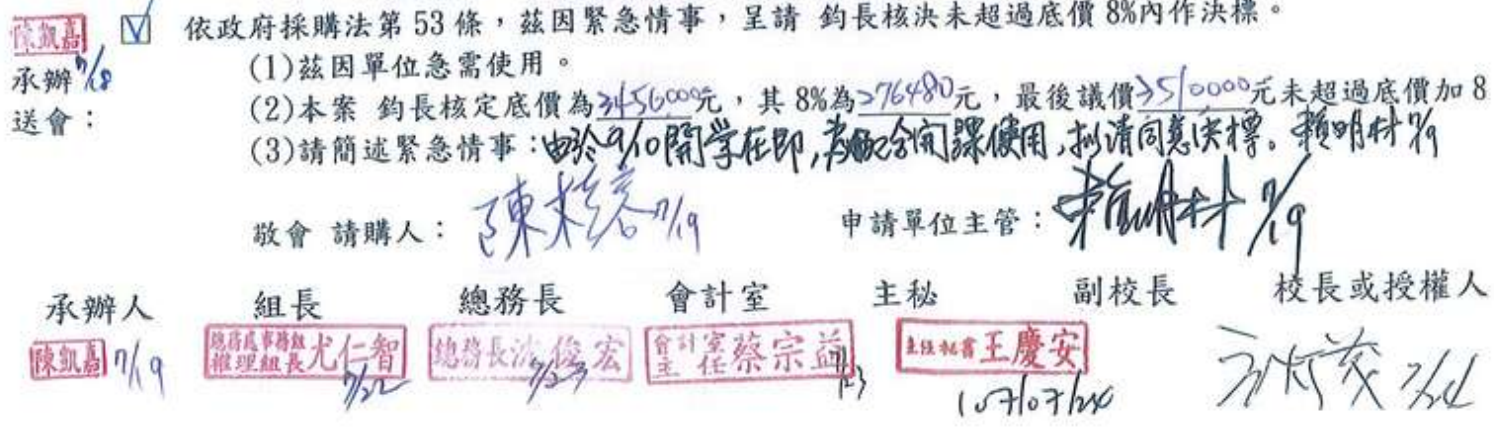 陳凱嘉 ☑ 依政府採購法第 53 條,茲因緊急情事,呈請 鈞長核決未超過底價 8%內作決標。
承辦 7/18
(1)茲因單位急需使用。
送會:
(2)本案 鈞長核定底價為3456000元,其 8%為276480元,最後議價3510000元未超過底價加 8
(3)請簡述緊急情事:由於9/10開学在即,為配合開課使用,拟请同意决標。賴明材 7/19
敬會 請購人: 7/19 申請單位主管:賴明材 7/19
承辦人 組長 總務長 會計室 主秘 副校長 校長或授權人
陳凱嘉 7/19 總務處事務組 雜理組長尤仁智 7/22 總務長沈俊宏 7/23 會計室主任蔡宗益 7/23 主任祕書王慶安 107/07/24 7/24